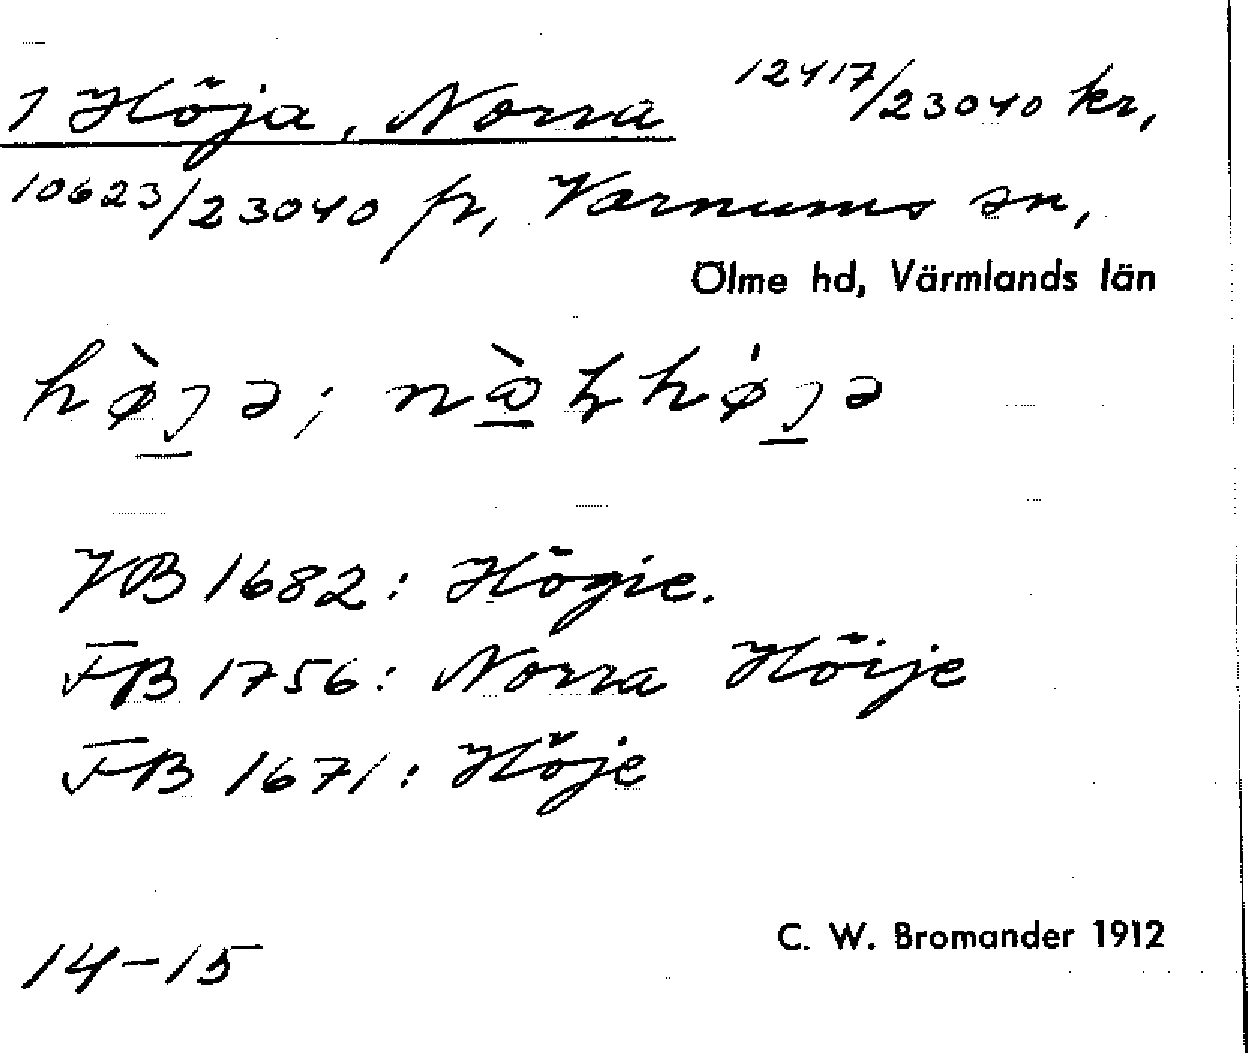 1 Höja, Norra 12417/23040 kr,
10623/23040 fr, Varnums sn,
Ölme hd, Värmlands län
hø̀jə; nö̀
JB 1682: Högie.
JB 1756: Norra Höije
JB 1671: Höje
C. W. Bromander 1912
14-15